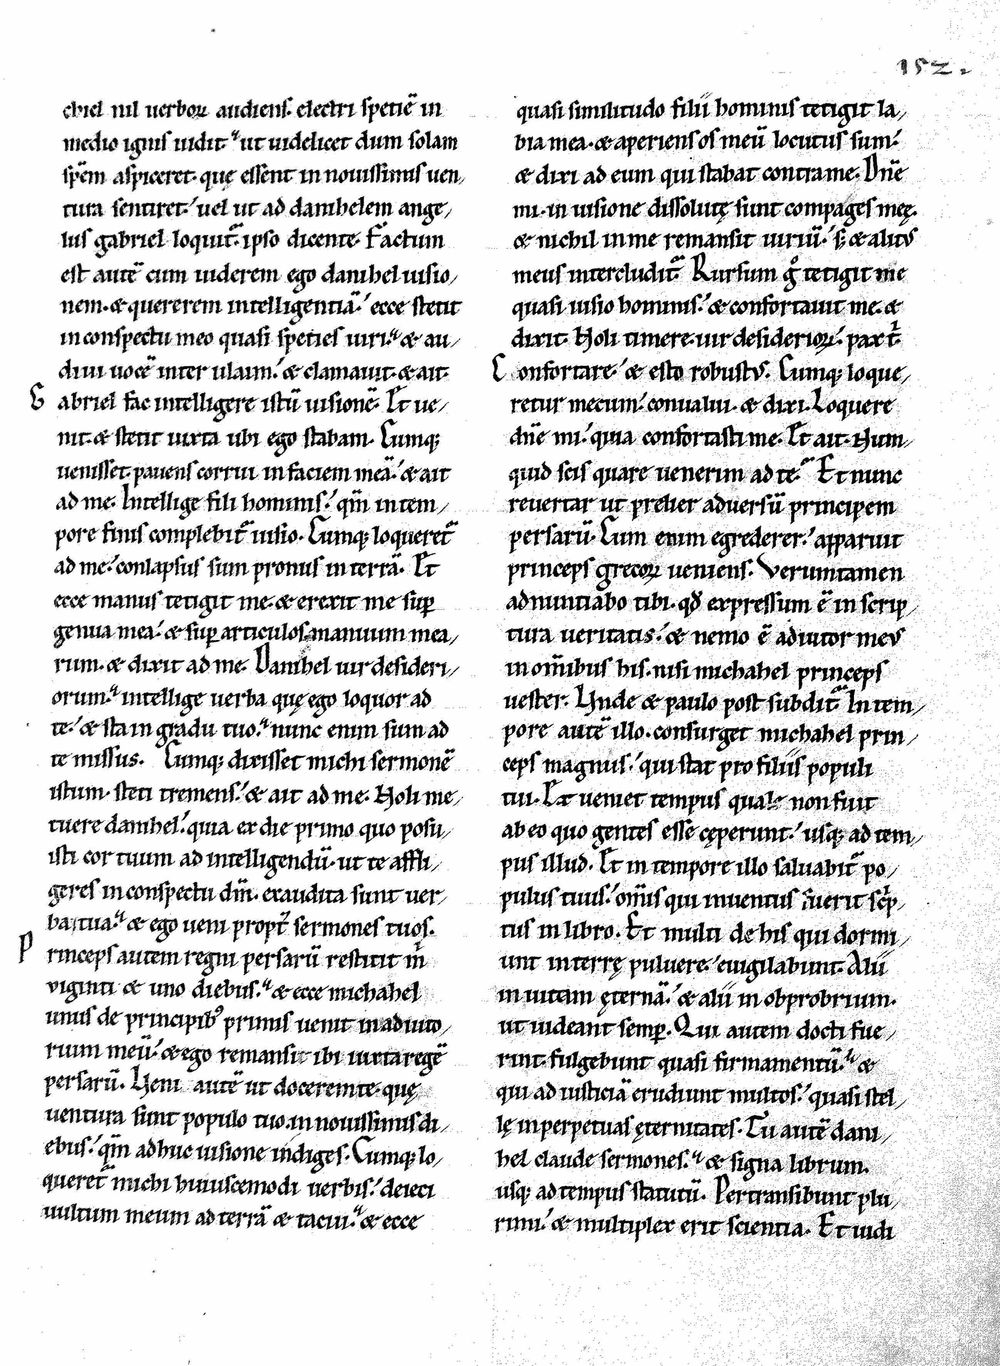 152.
chiel nil uerboꝝ audiens. electri spetiē in
medio ignis uidit. ut uidelicet dum solam
spēm aspiceret. quę essent in nouissimis uen,
tura sentiret. uel ut ad danihelem ange,
lus gabriel loquit̄. ipso dicente. Factum
est autē cum uiderem ego danihel uisio,
nem. & quererem intelligentiā. ecce stetit
in conspectu meo quasi speties uiri. & au,
diui uocē inter ulaim. & clamauit. & ait.
Gabriel fac intelligere istū uisionē. Et ue,
nit. & stetit iuxta ubi ego stabam. Cumq;
uenisset. pauens corrui in faciem meā. & ait
ad me. Intellige fili hominis. qm̄ in tem,
pore finis complebit̄ uisio. Cumq; loqueret̄
ad me. conlapsus sum pronus in terrā. Et
ecce manus tetigit me. & erexit me suꝑ
genua mea. & suꝑ articulos manuum mea,
rum. & dixit ad me. Danihel uir desideri,
orum. intellige uerba quę ego loquor ad
te. & sta in gradu tuo. nunc enim sum ad
te missus. Cumq; dixisset michi sermonē
istum. steti tremens. & ait ad me. Noli me,
tuere danihel. quia ex die primo quo posu,
isti cor tuum ad intelligendū. ut te affli,
geres in conspectu dīni. exaudita sunt uer,
ba tua. & ego ueni propt̄ sermones tuos.
Princeps autem regni persarū restitit m̄
viginti & uno diebus. & ecce michahel
unus de principib; primis uenit in adiuto,
rium meū. & ego remansi ibi iuxta regē
persarū. Ueni autē ut docerem te. quę
uentura sunt populo tuo. in nouissimis di,
ebus. qm̄ adhuc uisione indiges. Cumq; lo,
queret̄ michi huiuscemodi uerbis. deieci
uultum meum ad terrā & tacui. & ecce
quasi similitudo filii hominis tetigit la,
bia mea. & aperiens os meū locutus sum.
& dixi ad eum qui stabat contra me. Dn̄e
mi. in uisione dissolutę sunt compages meę.
& nichil in me remansit uiriū. s; & alitus
meus intercludit̄. Rursum g̊ tetigit me
quasi uisio hominis. & confortauit me. &
dixit. Noli timere. uir desiderioꝝ. pax t̄.
Confortare. & esto robustus. Cumq; loque,
retur mecum. conualui. & dixi. Loquere
dn̄e mi. quia confortasti me. Et ait. Num,
quid scis quare uenerim ad te. Et nunc
reuertar ut prelier aduersū principem
persarū. Cum enim egrederer. apparuit
princeps grecoꝝ ueniens. Verumtamen
adnuntiabo tibi. qd̄ expressum ē in scrip,
tura ueritatis. & nemo ē adiutor meus
in om̄ibus his. nisi michahel princeps
uester. Unde & paulo post subdit̄. In tem,
pore autē illo. consurget michahel prin,
ceps magnus. qui stat pro filiis populi
tui. Et ueniet tempus quale non fuit
ab eo quo gentes esse cęperunt. usq; ad tem,
pus illud. Et in tempore illo saluabit̄ po,
pulus tuus. om̄is qui inuentus fuerit sc̄p,
tus in libro. Et multi de his qui dormi,
unt in terrę puluere. euigilabunt. Alii
in uitam ęternā. & alii in obprobrium.
ut uideant semꝑ. Qui autem docti fue,
rint. fulgebunt quasi firmamentū. &
qui ad iusticiā erudiunt multos. quasi stel,
lę in perpetuas ęternitates. Tu autē dani,
hel claude sermones. & signa librum.
usq; ad tempus statutū. Pertransibunt plu,
rimi. & multiplex erit scientia. Et uidi